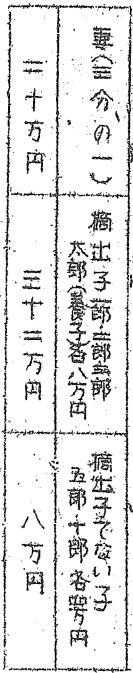 妻(三分の一)
嫡出子一郎
太郎(養子)各八万円
嫡出子でない子
五郎十郎各四万円
二十万円
三十二万円
八万円